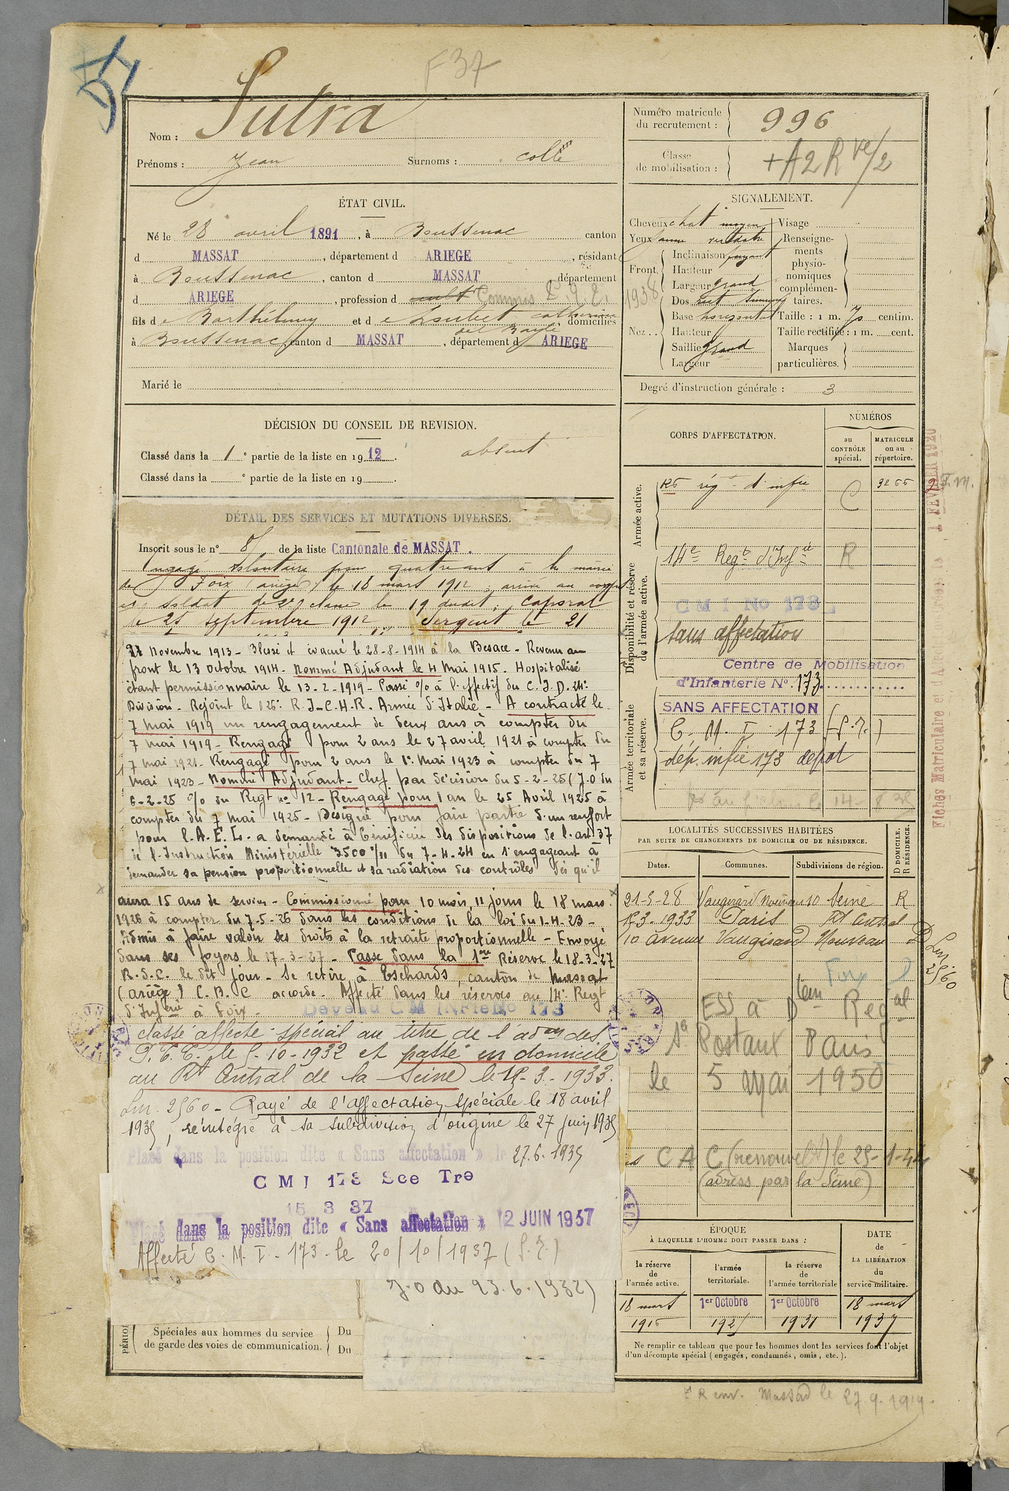 57
F 37
Nom : Sutra
Prénoms : Jean Surnoms : Collé
Numéro matricule du recrutement : 996
Classe de mobilisation : +A2R ve/2
ÉTAT CIVIL.
Né le 28 avril 1891, à Boussenac canton
d MASSAT, département d ARIEGE, résidant
à Boussenac, canton d MASSAT, département
d ARIEGE, profession d Commis P.T.T.
fils de Barthélemy et de Loubet Catherine domiciliés
à Boussenac, canton d MASSAT, département d ARIEGE
Marié le
SIGNALEMENT.
Cheveux chat moyen
Yeux
Front. Inclinaison fuyant
Hauteur
Largeur grand
Nez . . Dos
Base horizontal
Hauteur
Saillie grand
Largeur
1938
Visage
Renseignements physionomiques complémentaires.
Taille : 1 m. 70 centim.
Taille rectifiée : 1 m. cent.
Marques particulières.
Degré d'instruction générale : 3
DÉCISION DU CONSEIL DE REVISION.
Classé dans la 1e partie de la liste en 1912. absent
Classé dans la e partie de la liste en 19
DÉTAIL DES SERVICES ET MUTATIONS DIVERSES.
Inscrit sous le n° 8 de la liste Cantonale de MASSAT.
Engagé volontaire pour quatre ans à la mairie
de Foix (Ariège) le 18 mars 1912, arrivé au corps
et soldat de 2e classe le 19 dudit, Caporal
le 25 septembre 1912, Sergent le 21
21 Novembre 1913 - Blessé et évacué le 28-8-1914 à la Besace - Revenu au
front le 13 octobre 1914 - Nommé Adjudant le 4 Mai 1915 - Hospitalisé
étant permissionnaire le 13-2-1919 - Passé % à l'effectif du C.I.D. 24e
Division - Rejoint le 126e R.I. - C.H.R. Armée d'Italie - A contracté le
7 mai 1919 un rengagement de deux ans à compter du
7 mai 1919 - Rengagé pour 2 ans le 27 avril 1921 à compter du
7 mai 1921 - Rengagé pour 2 ans le 1er Mai 1923 à compter du 7
mai 1923 - Nommé Adjudant-Chef par décision du 5-2-25 (J.O. du
6-2-25 % du Regt n° 12 - Rengagé pour 1 an le 25 Avril 1925 à
compter du 7 mai 1925 - Désigné pour faire partie d'un renfort
pour l'A.E.L. a demandé à bénéficier des dispositions de l'art. 37
de l'Instruction Ministérielle 3500 1/11 du 7-4-24 en s'engageant à
demander sa pension proportionnelle et sa radiation des contrôles dès qu'il
aura 15 ans de service - Commissionné pour 10 mois, 11 jours le 18 mars
1926 à compter du 7-5-26 dans les conditions de la loi du 1-4-23 -
Admis à faire valoir ses droits à la retraite proportionnelle - Envoyé
dans ses foyers le 17-3-27 - Passé dans la 1re Réserve le 18-3-27
R.D.C. le dit jour - Se retire à Eschards, canton de Massat
(Ariège) C.B.C accordé - Affecté dans les réserves au 14e Regt
d'Infrie à Foix - Devenu C M INFIE No 173
Classé affecté spécial au titre de l'admon des
P.T.T. le 5-10-1932 et passé en domicile
au Rt Central de la Seine le 15-3-1933.
Lm. 2560 - Rayé de l'affectation spéciale le 18 avril
1935, réintégré à sa subdivision d'origine le 27 juin 1935
Placé dans la position dite « Sans affectation » le 27.6.1935
C M I 173 Sce Tre
15 3 37
Placé dans la position dite « Sans affectation » 12 JUIN 1937
Affecté C.M.I. 173 le 20/10/1937 (S.T.)
J.O du 23.6.1932)
Spéciales aux hommes du service de garde des voies de communication. Du
Du
CORPS D'AFFECTATION.
NUMÉROS
au CONTRÔLE spécial.
MATRICULE ou au répertoire.
Armée active.
rég. d'infie C 3255
Disponibilité et réserve de l'armée active.
14e Regt d'Infie R
C M I No 173
Sans affectation
Centre de Mobilisation
d'Infanterie N° 173
SANS AFFECTATION
Armée territoriale et sa réserve.
C. M. I. 173 (S.T.)
dép. infie 173 dépôt
1 FEVRIER 1920
LOCALITÉS SUCCESSIVES HABITÉES
PAR SUITE DE CHANGEMENTS DE DOMICILE OU DE RÉSIDENCE.
Dates. Communes. Subdivisions de région. D DOMICILE. R RÉSIDENCE.
21-5-28 Vaugirard Nouveau 10 Seine R
15-3-1933 Paris Rt Central
10 avenue Vaugirard Nouveau D
Lm 2560
Foix D
ESS à Dtion Regale
Sce Postaux 8 ans
le 5 mai 1950
C A C (renouvelé) le 25-1-44
(adress. par la Seine)
ÉPOQUE
À LAQUELLE L'HOMME DOIT PASSER DANS :
DATE de LA LIBÉRATION du service militaire.
la réserve de l'armée active.
l'armée territoriale.
la réserve de l'armée territoriale
18 mars 1915
1er Octobre 1925
1er Octobre 1931
18 mars 1937
Ne remplir ce tableau que pour les hommes dont les services font l'objet
d'un décompte spécial (engagés, condamnés, omis, etc.).
Massat le 27.9.1919.